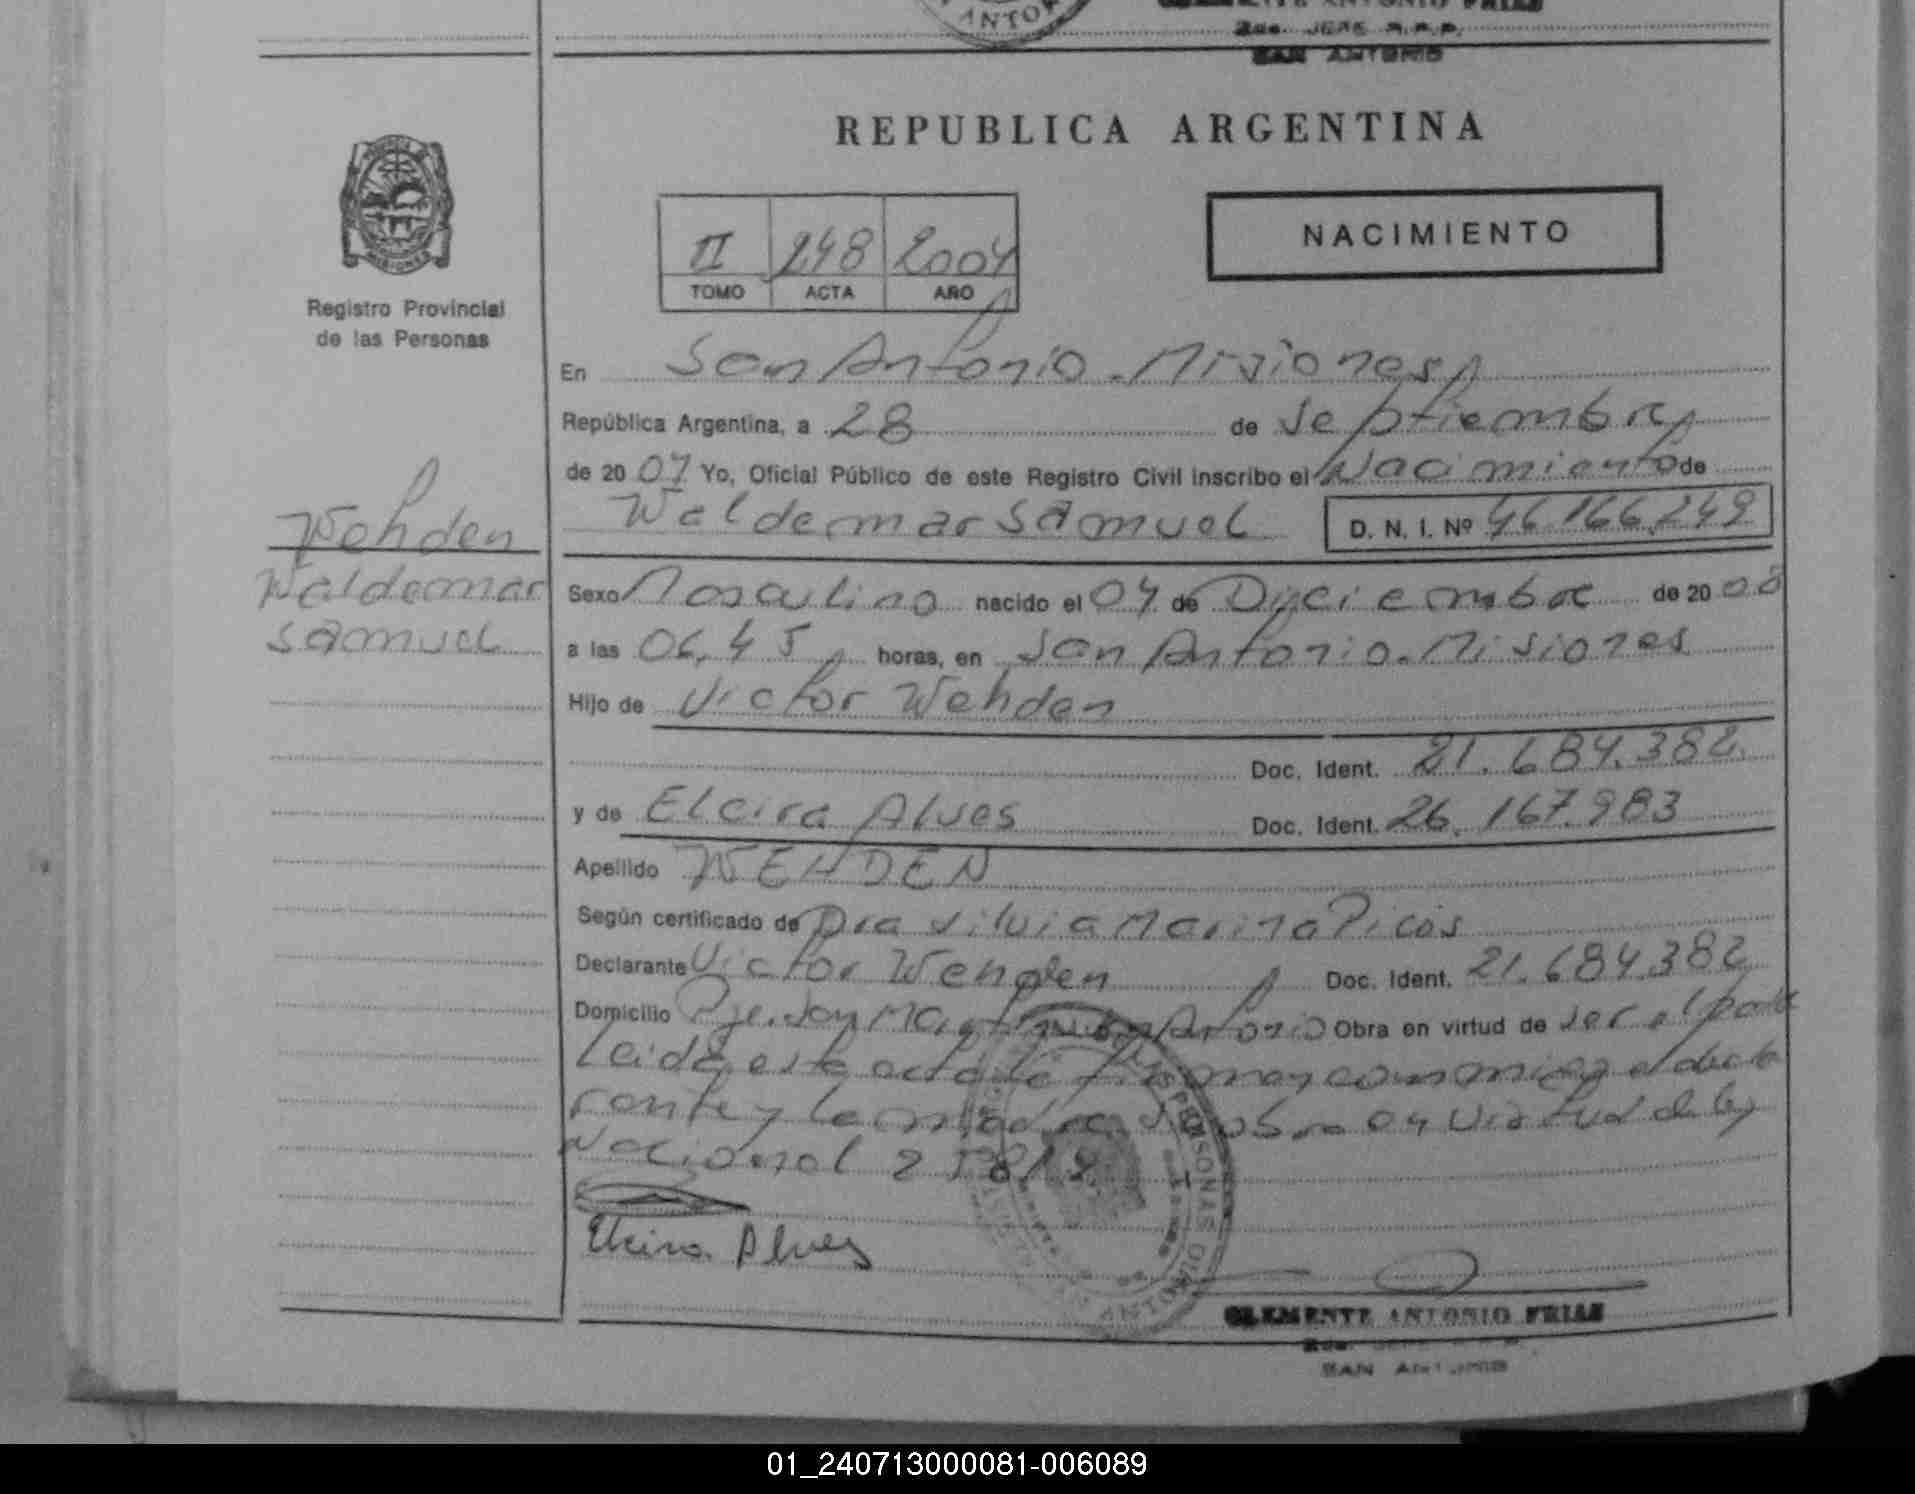 CLEMENTE ANTONIO FRIAS
JEFE R.P.P.
SAN ANTONIO
REPUBLICA ARGENTINA
NACIMIENTO
II 248 2004
TOMO ACTA AÑO
MISIONES
Registro Provincial
de las Personas
En San Antonio - Misiones
República Argentina, a 28 de Septiembre
de 20 04 Yo, Oficial Público de este Registro Civil inscribo el Nacimiento de
Waldemar Samuel D. N. I. Nº 46.166.249
Wehden
Waldemar
Samuel
Sexo Masculino nacido el 04 de Diciembre de 20 
a las 06,45 horas, en San Antonio - Misiones
Hijo de Victor Wehden
Doc. Ident. 21.684.382
y de Elcira Alves Doc. Ident. 26.167.983
Apellido WEHDEN
Según certificado de Dra Silvia Marina Picos
Declarante Victor Wehden Doc. Ident. 21.684.382
Domicilio Pje. San Martin San Antonio Obra en virtud de ser el padre
Leida este acta la firman conmigo el decla
rante y la madre obra en virtud de ley
Nacional
Elcira Alves
CLEMENTE ANTONIO FRIAS
SAN ANTONIO
01_240713000081-006089